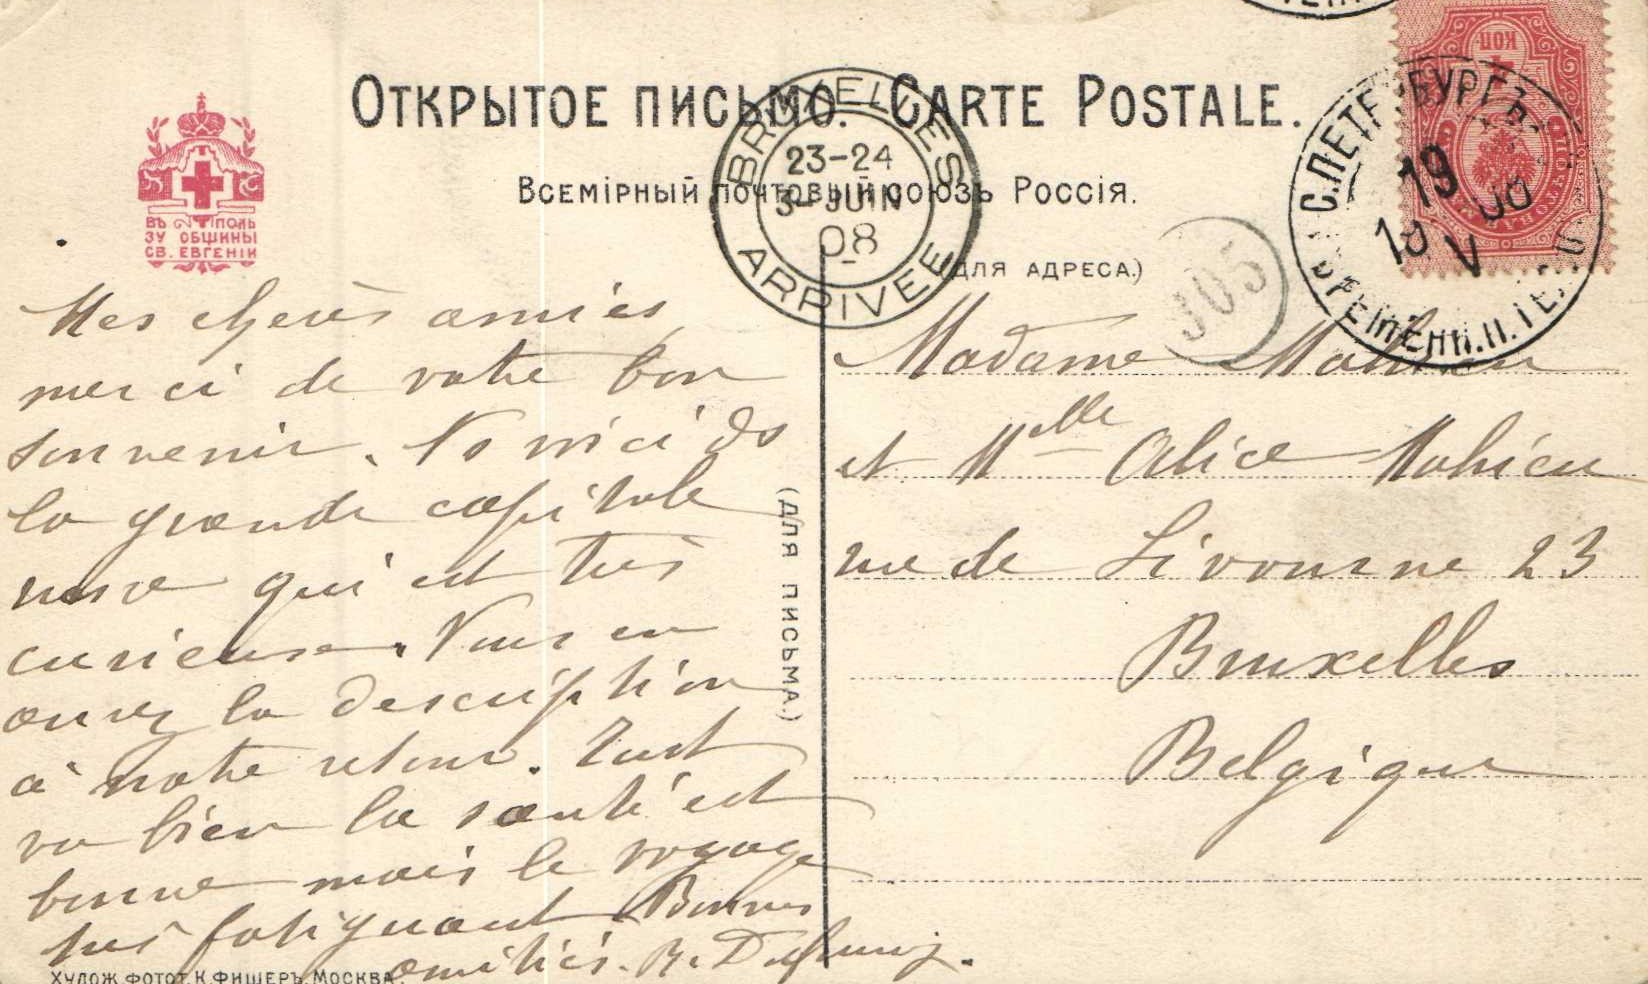 ОТКРЫТОЕ ПИСЬМО. CARTE POSTALE.
ВСЕМІРНЫЙ ПОЧТОВЫЙ СОЮЗЪ РОССІЯ.
(ДЛЯ АДРЕСА.)
ВЪ ПОЛЬ
ЗУ ОБЩИНЫ
СВ. ЕВГЕНІИ
BRUXELLES
23-24
3-JUIN
08
ARRIVEE
С.ПЕТЕРБУРГЪ
19
18 V
КОП
305
Mes cheres amies
merci de votre bon
souvenir. Ns voici ds
la grande capitale
russe qui est très
curieuse. Vous en
aurez la description
à notre retour. Tout
va bien la santé est
bonne mais le voyage
très fatiguant Bonnes
amitiés. R.
(ДЛЯ ПИСЬМА.)
Madame Mahieu
et Melle Alice Mahieu
rue de Livourne 23
Bruxelles
Belgique
ХУДОЖ.ФОТОТ.К.ФИШЕРЪ,МОСКВА.